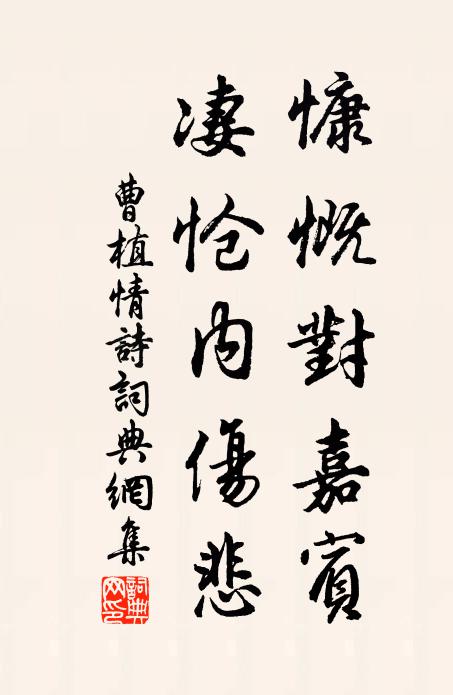 慷慨對嘉賓
凄愴内傷悲
曹植情詩詞典網集
詞典網印